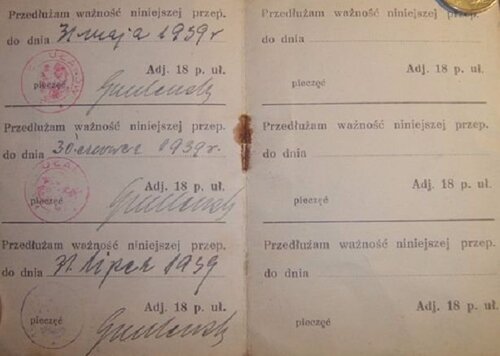 Przedłużam ważność niniejszej przep.
do dnia 31 maja 1939 r
Adj. 18 p. uł.
pieczęć
Przedłużam ważność niniejszej przep.
do dnia 30 czerwca 1939 r.
Adj. 18 p. uł.
pieczęć
Przedłużam ważność niniejszej przep.
do dnia 31 lipca 1939
Adj. 18 p. uł.
pieczęć
Przedłużam ważność niniejszej przep.
do dnia
Adj. 18 p. uł.
pieczęć
Przedłużam ważność niniejszej przep.
do dnia
Adj. 18 p. uł.
pieczęć
Przedłużam ważność niniejszej przep.
do dnia
Adj. 18 p. uł.
pieczęć